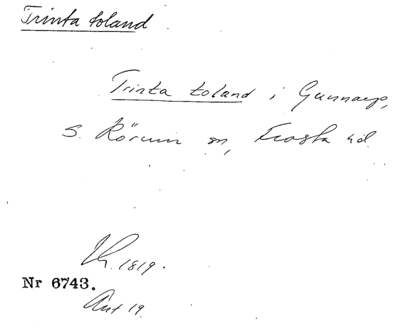 Trinta toland
Trinta toland i Gunnarp,
S. Rörum sn, Frosta hd
1819.
Nr 6743.
Akt 19.